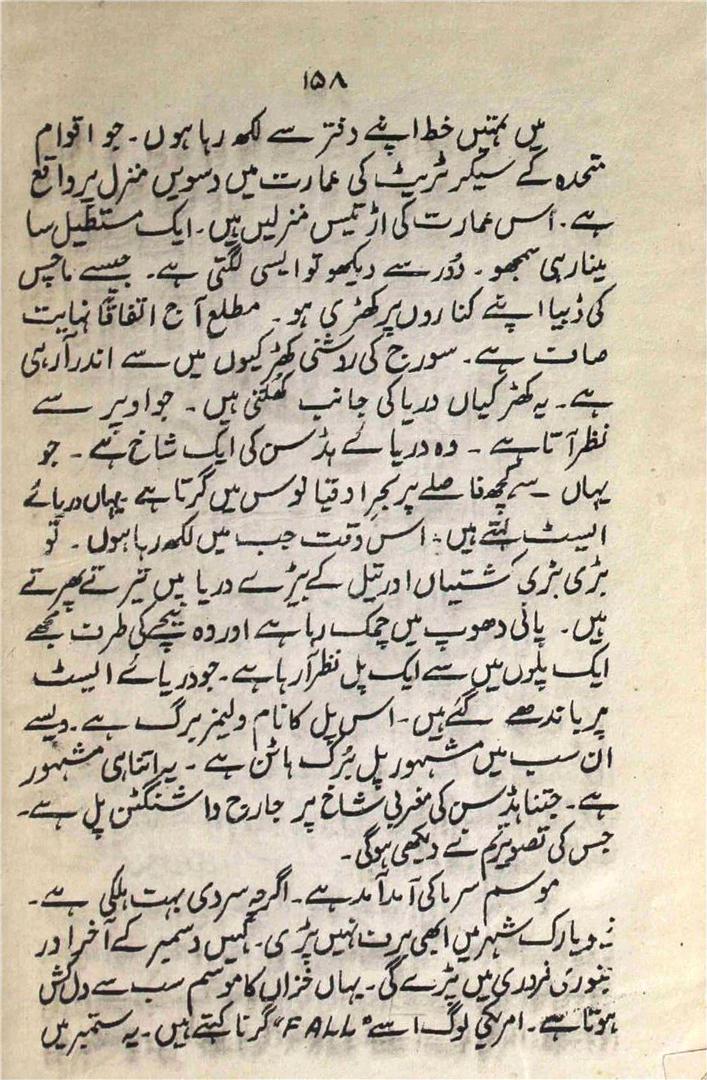 ۱۵۸
میں تمہیں خط اپنے دفتر سے لکھ رہا ہوں ۔ جو اقوام
متحدہ کے سیکرٹریٹ کی عمارت میں دسویں منزل پر واقع
ہے ۔ اُس عمارت کی اڑتیس منزلیں ہیں ۔ ایک مستطیل سا
مینار ہی سمجھو ۔ دُور سے دیکھو تو ایسی لگتی ہے ۔ جیسے ماچس
کی ڈبیا اپنے کناروں پر کھڑی ہو ۔ مطلع آج اتفاقاً نہایت
صاف ہے ۔ سورج کی روشنی کھڑکیوں میں سے اندر آ رہی
ہے ۔ یہ کھڑکیاں دریا کی جانب کھُلتی ہیں ۔ جو اوپر سے
نظر آتا ہے ۔ وہ دریائے ہڈسن کی ایک شاخ ہے ۔ جو
یہاں سے کچھ فاصلے پر بحرِ اوقیانوس میں گرتا ہے یہاں دریائے
ایسٹ کہتے ہیں ۔ اس وقت جب میں لکھ رہا ہوں ۔ تو
بڑی بڑی کشتیاں اور تیل کے بیڑے دریا میں تیرتے پھرتے
ہیں ۔ پانی دھوپ میں چمک رہا ہے اور وہ نیچے کی طرف مجھے
ایک پلوں میں سے ایک پل نظر آ رہا ہے ۔ جو دریائے ایسٹ
پر باندھے گئے ہیں ۔ اس پل کا نام ولیمز برگ ہے ۔ ویسے
ان سب میں مشہور پل بُرگ ہاٹن ہے ۔ یہ اتنا ہی مشہور
ہے ۔ جتنا ہڈسن کی مغربی شاخ پر جارج واشنگٹن پل ہے ۔
جس کی تصویر تم نے دیکھی ہوگی ۔
موسم سرما کی آمد آمد ہے ۔ اگرچہ سردی بہت ہلکی ہے ۔
نیویارک شہر میں ابھی برف نہیں پڑی ۔ کہیں دسمبر کے آخر اور
جنوری فروری میں پڑے گی ۔ یہاں خزاں کا موسم سب سے دل کش
ہوتا ہے ۔ امریکی لوگ اسے "FALL" گرنا کہتے ہیں ۔ یہ ستمبر میں